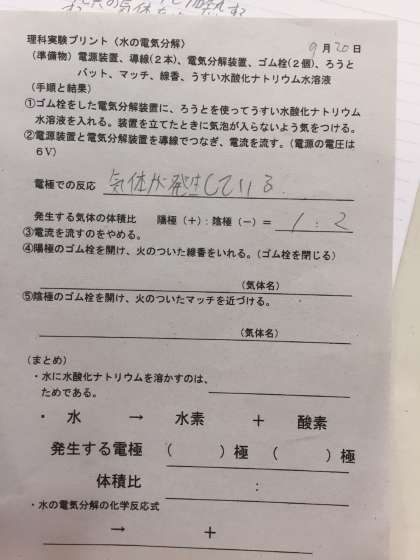 理科実験プリント〈水の電気分解〉 9月20日
(準備物) 電源装置、導線(2本)、電気分解装置、ゴム栓(2個)、ろうと
バット、マッチ、線香、うすい水酸化ナトリウム水溶液
(手順と結果)
①ゴム栓をした電気分解装置に、ろうとを使ってうすい水酸化ナトリウム
水溶液を入れる。装置を立てたときに気泡が入らないよう気をつける。
②電源装置と電気分解装置を導線でつなぎ、電流を流す。(電源の電圧は
6V)
電極での反応 気体が発生している
発生する気体の体積比 陽極(+):陰極(−)= 1:2
③電流を流すのをやめる。
④陽極のゴム栓を開け、火のついた線香をいれる。(ゴム栓を閉じる)
(気体名)
⑤陰極のゴム栓を開け、火のついたマッチを近づける。
(気体名)
(まとめ)
・水に水酸化ナトリウムを溶かすのは、
ためである。
・ 水 → 水素 + 酸素
発生する電極 ( )極 ( )極
体積比 :
・水の電気分解の化学反応式
→ +